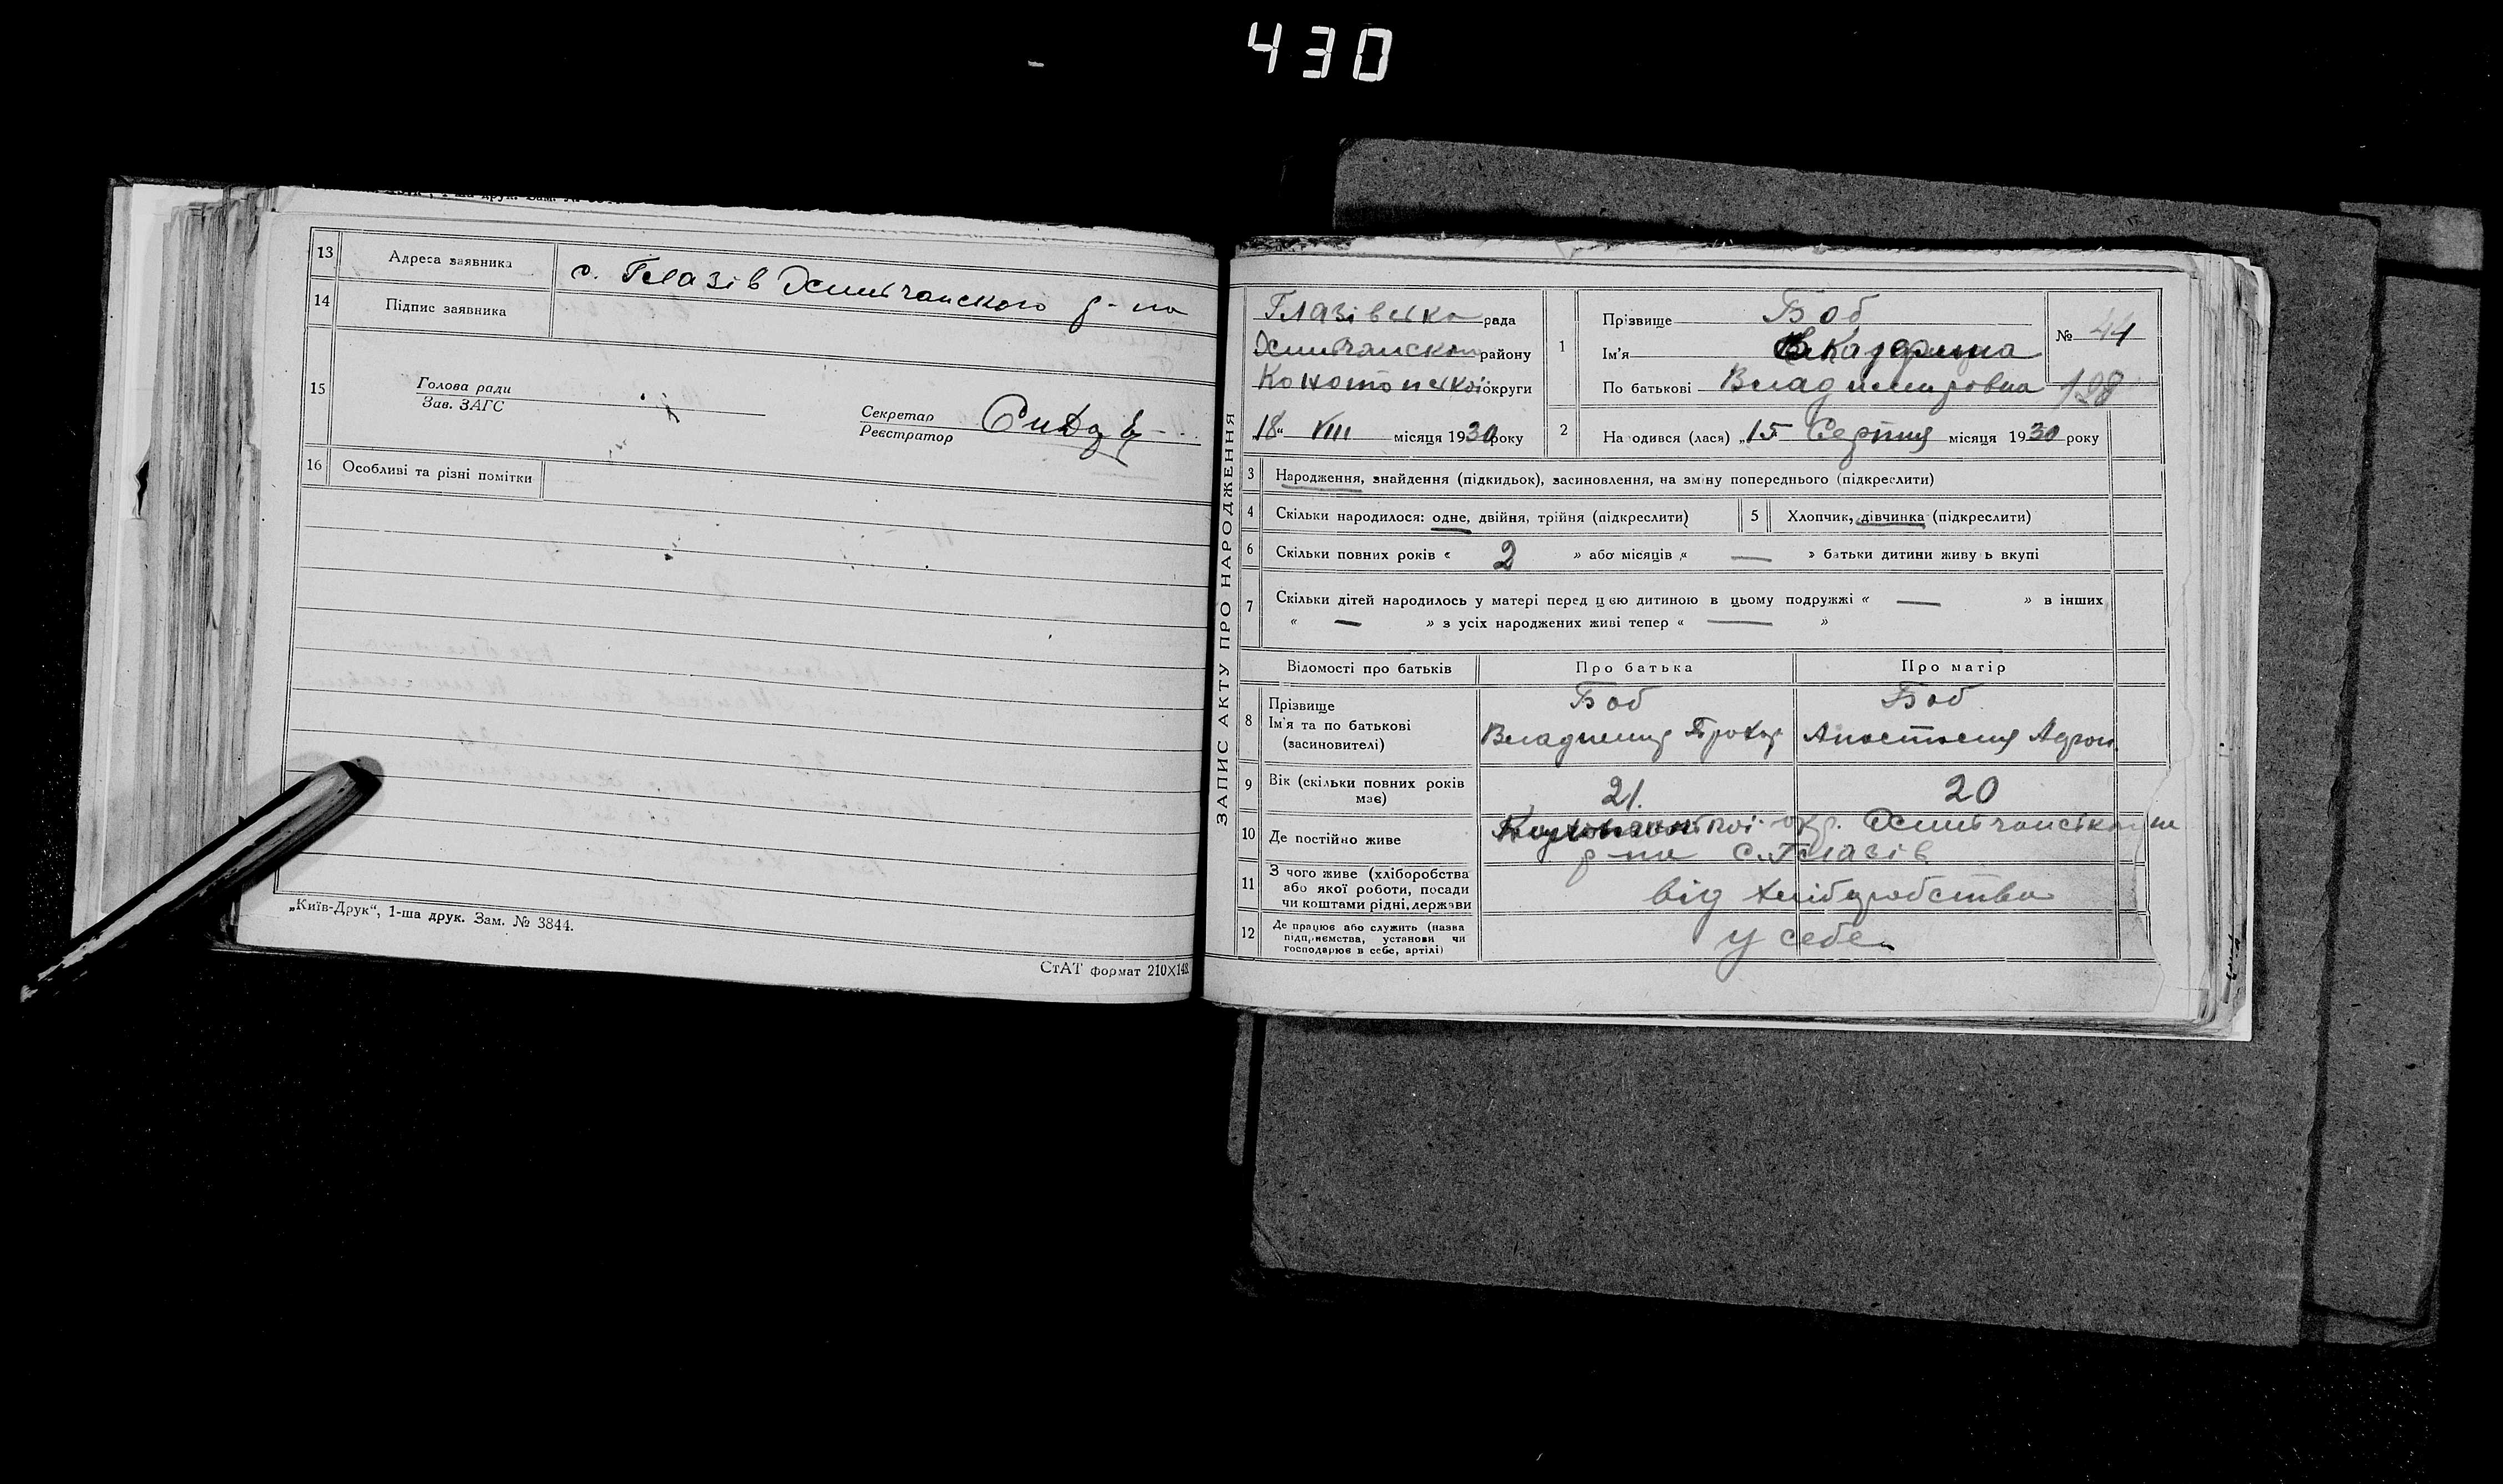 430
13 Адреса заявника с. Глазів Эсманьчанского р-на
14 Підпис заявника
15 Голова ради
Зав. ЗАГС
Секретар
Реєстратор
16 Особливі та різні помітки
„Київ-Друк“, 1-ша друк. Зам. № 3844.
СтАТ формат 210×148
ЗАПИС АКТУ ПРО НАРОДЖЕННЯ
Глазівська рада
району
Конотопської округи
„18“ VIII місяця 1930 року
1 Прізвище Боб
Ім'я Екатерина
По батькові Владимировна
№ 41
128
2 На одився (лася) „15 Серпня місяця 1930 року
3 Народження, знайдення (підкидьок), засиновлення, на зміну попереднього (підкреслити)
4 Скільки народилося: одне, двійня, трійня (підкреслити) 5 Хлопчик, дівчинка (підкреслити)
6 Скільки повних років « 2 » або місяців « — » батьки дитини живу ь вкупі
7 Скільки дітей народилось у матері перед цією дитиною в цьому подружжі « — » в інших
« — » з усіх народжених живі тепер « — »
Відомості про батьків Про батька Про матір
8 Прізвище Боб Боб
Ім'я та по батькові Владимир Прохор Анастасия
(засновителі)
9 Вік (скільки повних років має) 21. 20
10 Де постійно живе окр.
р-на с. Глазів
11 З чого живе (хліборобства
або якої роботи, посади
чи коштами рідні, держави
від хліборобства
12 Де працює або служить (назва
підприємства, установи чи
господарює в себе, артілі)
у себе